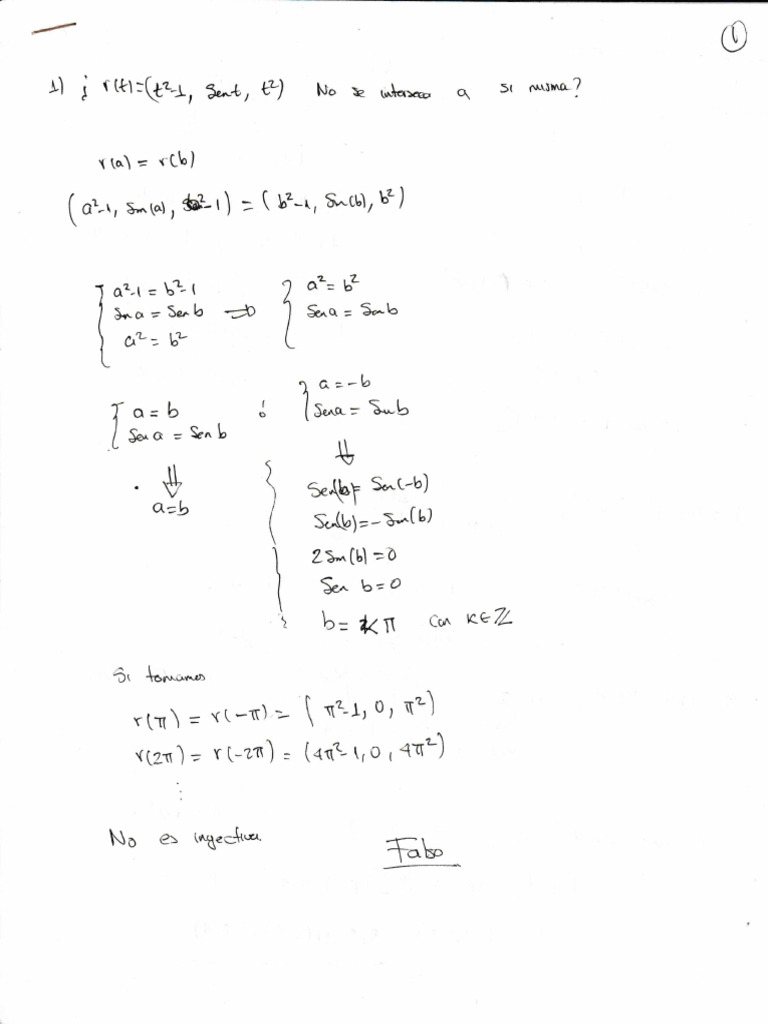 1
1) ¿ r(t)=(t²-1, Sent, t²) No se interseca a si misma?
r(a) = r(b)
(a²-1, Sen(a), b²-1) = (b²-1, Sen(b), b²)
{ a²-1 = b²-1 { a² = b²
Sen a = Sen b => Sen a = Sen b
a² = b²
{ a = b ó { a = -b
Sen a = Sen b Sen a = Sen b
⇓ ⇓
a=b Sen(b)= Sen(-b)
Sen(b)=-Sen(b)
2 Sen(b) = 0
Sen b=0
b= kπ Con K∈ℤ
Si tomamos
r(π) = r(-π) = (π²-1, 0, π²)
r(2π) = r(-2π) = (4π²-1, 0, 4π²)
⋮
No es inyectiva
Falso